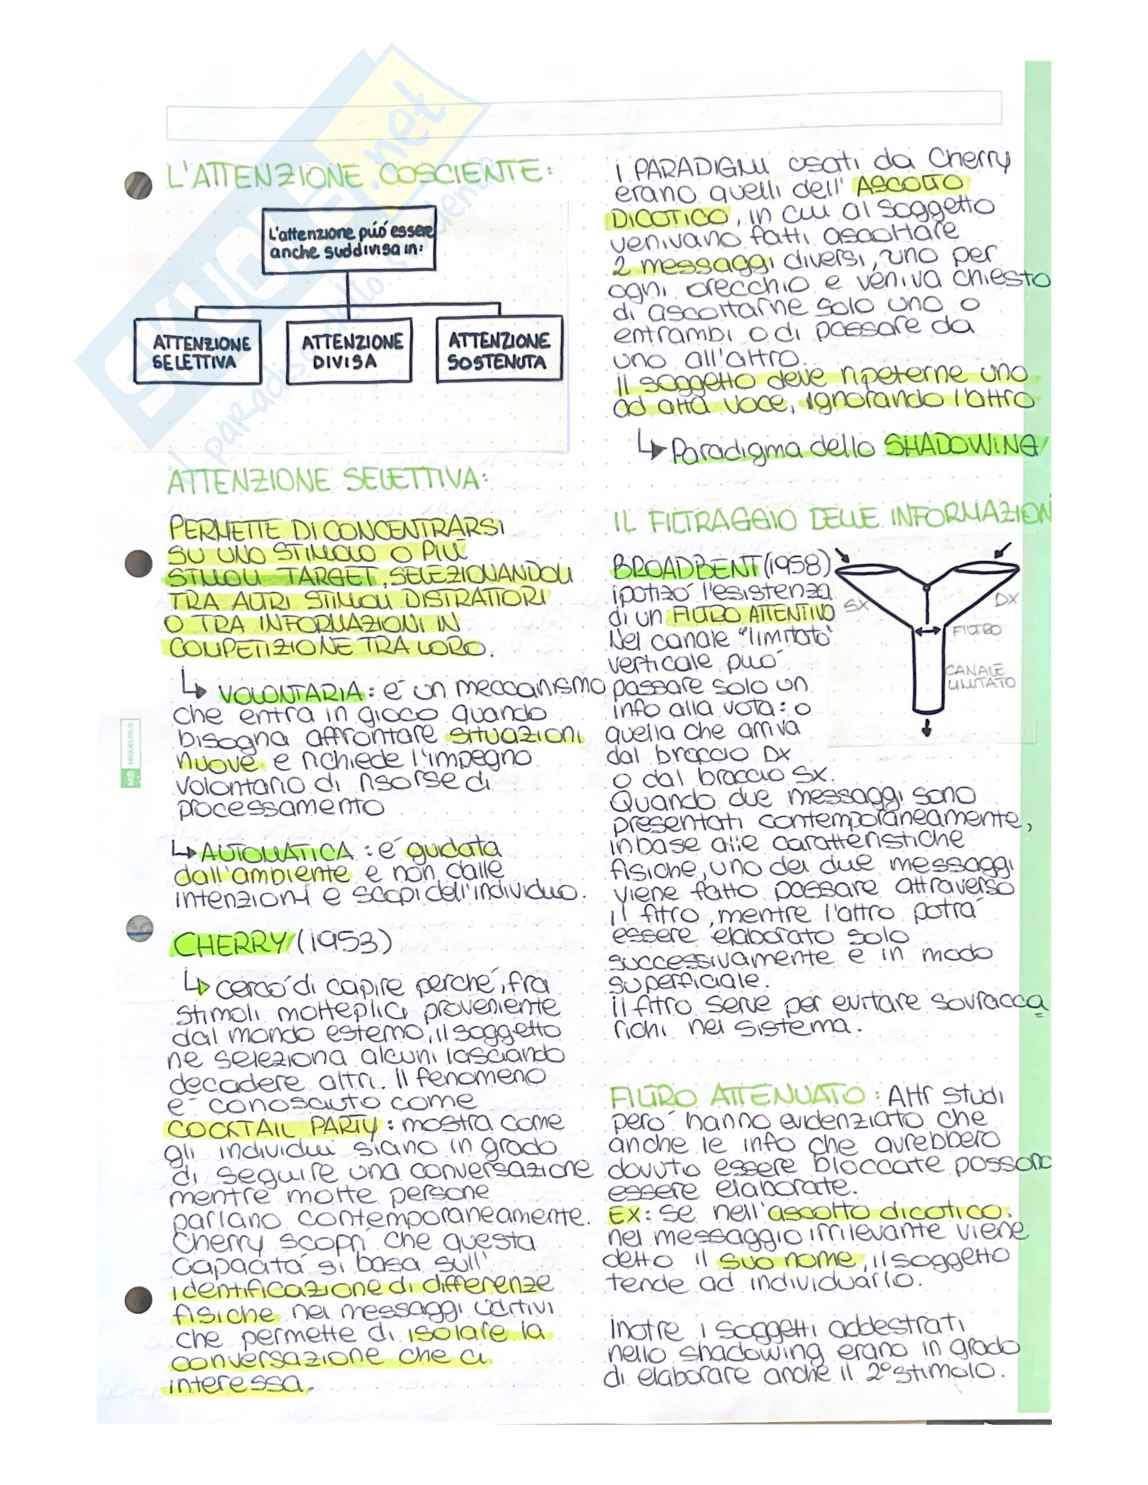 L'ATTENZIONE COSCIENTE:
L'attenzione può essere
anche suddivisa in:
ATTENZIONE
SELETTIVA
ATTENZIONE
DIVISA
ATTENZIONE
SOSTENUTA
ATTENZIONE SELETTIVA:
PERMETTE DI CONCENTRARSI
SU UNO STIMOLO O PIÙ
STIMOLI TARGET, SELEZIONANDOLI
TRA ALTRI STIMOLI DISTRATTORI
O TRA INFORMAZIONI IN
COMPETIZIONE TRA LORO.
↳ VOLONTARIA: é un meccanismo
che entra in gioco quando
bisogna affrontare situazioni
nuove e richiede l'impegno
volontario di risorse di
processamento
↳ AUTOMATICA: é guidata
dall'ambiente e non dalle
intenzioni e scopi dell'individuo.
CHERRY (1953)
↳ cercó di capire perché, fra
stimoli molteplici proveniente
dal mondo esterno, il soggetto
ne seleziona alcuni lasciando
decadere altri. Il fenomeno
é conosciuto come
COCKTAIL PARTY: mostra come
gli individui siano in grado
di seguire una conversazione
mentre molte persone
parlano contemporaneamente.
Cherry scoprí che questa
capacitá si basa sull'
identificazione di differenze
fisiche nei messaggi uditivi
che permette di isolare la
conversazione che ci
interessa.
I PARADIGMI usati da Cherry
erano quelli dell'ASCOLTO
DICOTICO, in cui al soggetto
venivano fatti ascoltare
2 messaggi diversi, uno per
ogni orecchio e veniva chiesto
di ascoltarne solo uno o
entrambi o di passare da
uno all'altro.
Il soggetto deve ripeterne uno
ad alta voce, ignorando l'altro
↳ Paradigma dello SHADOWING
IL FILTRAGGIO DELLE INFORMAZION
BROADBENT (1958)
ipotizó l'esistenza
di un FILTRO ATTENTIVO
Nel canale "limitato"
verticale puó
passare solo un
info alla volta: o
quella che arriva
dal braccio DX
o dal braccio SX.
SX
DX
FILTRO
CANALE
LIMITATO
Quando due messaggi sono
presentati contemporaneamente,
in base alle caratteristiche
fisiche, uno dei due messaggi
viene fatto passare attraverso
il filtro, mentre l'altro potrá
essere elaborato solo
successivamente e in modo
superficiale.
Il filtro serve per evitare sovracca
richi nel sistema.
FILTRO ATTENUATO: Altri studi
peró hanno evidenziato che
anche le info che avrebbero
dovuto essere bloccate possono
essere elaborate.
EX: Se nell'ascolto dicotico,
nel messaggio irrilevante viene
detto il suo nome, il soggetto
tende ad individuarlo.
Inoltre i soggetti addestrati
nello shadowing erano in grado
di elaborare anche il 2° stimolo.
SKUOLA.net